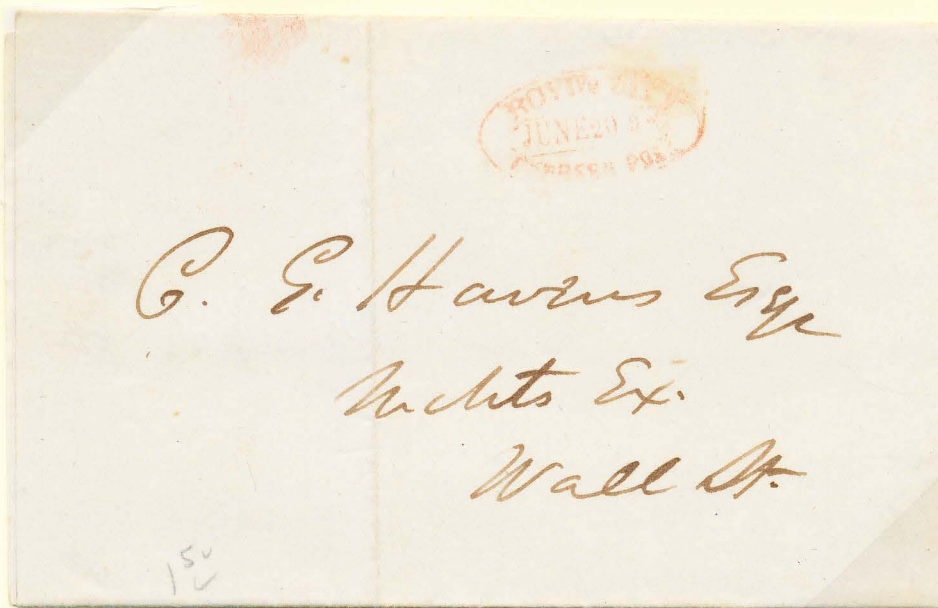 BOYD'S CITY
JUNE 20
EXPRESS POST
C. G. Havens Esqr
Mchts Ex.
Wall St.